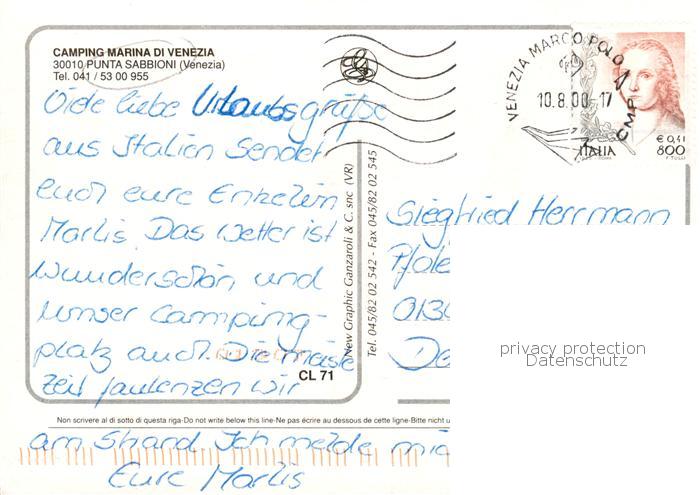 CAMPING MARINA DI VENEZIA
30010 PUNTA SABBIONI (Venezia)
Tel. 041 / 53 00 955
Viele liebe Urlaubsgrüße
aus Italien sendet
euch eure Enkelin
Marlis. Das Wetter ist
wunderschön und
unser Camping-
platz auch. Die meiste
Zeit faulenzen wir
am Strand. Ich melde mic
Eure Marlis
CL 71
Non scrivere al di sotto di questa riga-Do not write below this line-Ne pas écrire au dessous de cette ligne-Bitte nicht u
New Graphic Ganzaroli & C. snc (VR)
Tel. 045/82 02 542 - Fax 045/82 02 545
VENEZIA MARCO POLO
CMP
10.8.00-17
€ 0,41
800
ITALIA
F. TULLI
Siegfried Herrmann
013
De
privacy protection
Datenschutz